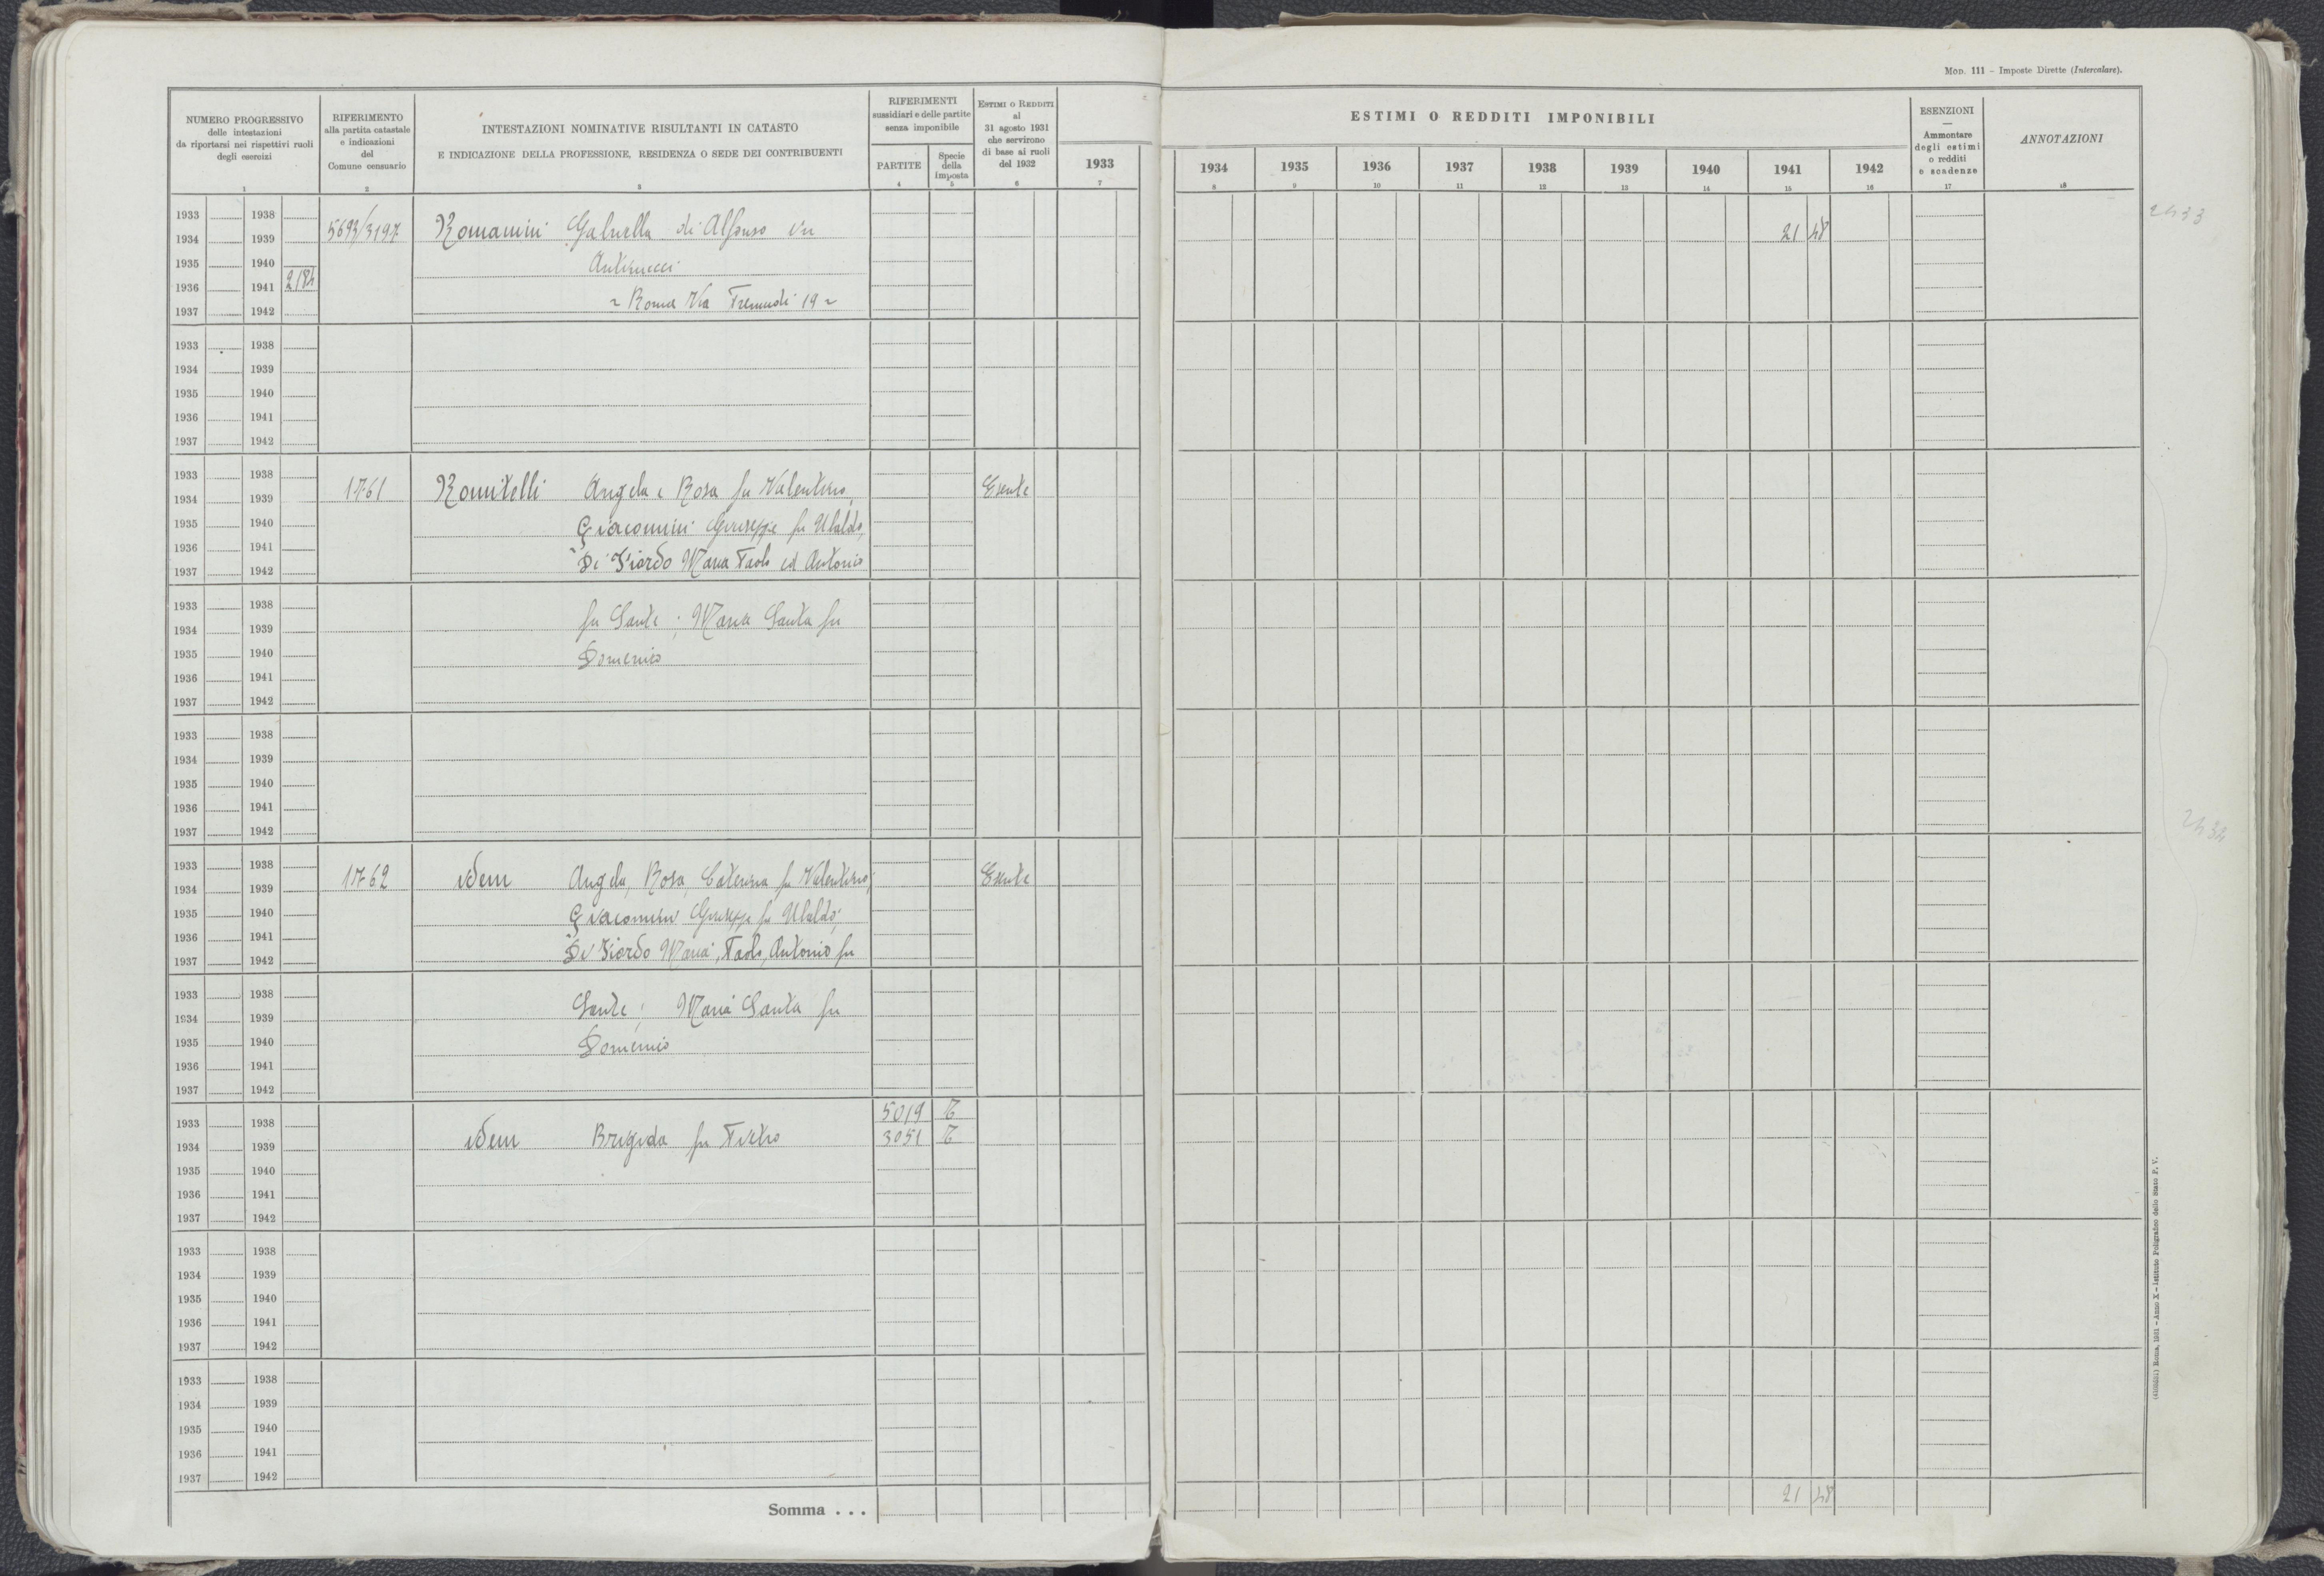 MOD. 111 – Imposte Dirette (Intercalare).
NUMERO PROGRESSIVO
delle intestazioni
da riportarsi nei rispettivi ruoli
degli esercizi
RIFERIMENTO
alla partita catastale
e indicazioni
del
Comune censuario
INTESTAZIONI NOMINATIVE RISULTANTI IN CATASTO
E INDICAZIONE DELLA PROFESSIONE, RESIDENZA O SEDE DEI CONTRIBUENTI
RIFERIMENTI
sussidiari e delle partite
senza imponibile
PARTITE
Specie
della
imposta
ESTIMI O REDDITI
al
31 agosto 1931
che servirono
di base ai ruoli
del 1932
ESTIMI O REDDITI IMPONIBILI
1933 1934 1935 1936 1937 1938 1939 1940 1941 1942
ESENZIONI
—
Ammontare
degli estimi
o redditi
e scadenze
ANNOTAZIONI
1 2 3 4 5 6 7 8 9 10 11 12 13 14 15 16 17 18
1933 1938
1934 1939 5693/3197 Romanini Gabriella di Alfonso in 21 48 2433
1935 1940 Antinucci
1936 1941 2184 ~ Roma Via 19 ~
1937 1942
1933 1938
1934 1939
1935 1940
1936 1941
1937 1942
1933 1938
1934 1939 1761 Romitelli Angela e Rosa fu Valentino, Esente
1935 1940 Giacomini Giuseppe fu Ubaldo,
1936 1941
1937 1942 Di Fiordo Maria Paolo ed Antonio
1933 1938
1934 1939 fu Sante ; Maria Santa fu
1935 1940 Domenico
1936 1941
1937 1942
1933 1938
1934 1939
1935 1940
1936 1941
1937 1942
2434
1933 1938
1934 1939 1762 idem Angela, Rosa, Caterina fu Valentino; Esente
1935 1940 Giacomini Giuseppe fu Ubaldo;
1936 1941
1937 1942 Di Fiordo Maria, Paolo, Antonio fu
1933 1938
1934 1939 Sante ; Maria Santa fu
1935 1940 Domenico
1936 1941
1937 1942
5019 T
1933 1938
1934 1939 idem Brigida fu Pietro 3051 T
1935 1940
1936 1941
1937 1942
1933 1938
1934 1939
1935 1940
1936 1941
1937 1942
1933 1938
1934 1939
1935 1940
1936 1941
1937 1942
Somma . . . 21 48
Roma, 1931 – Anno X – Istituto Poligrafico dello Stato P. V.